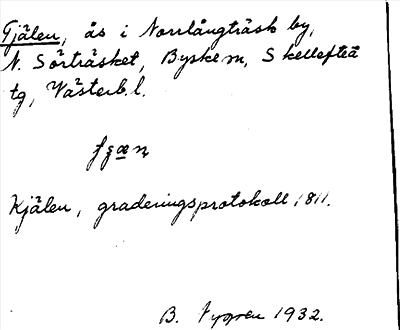 Tjälen, ås i Norrlångträsk by,
N. Sörträsket, Byske sn, Skellefteå
tg, Västerb. l.
Kjälen, graderingsprotokoll 1811.
B. 1932.